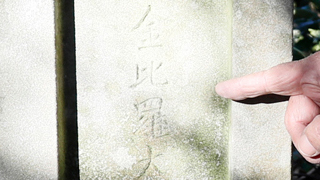 金比羅大